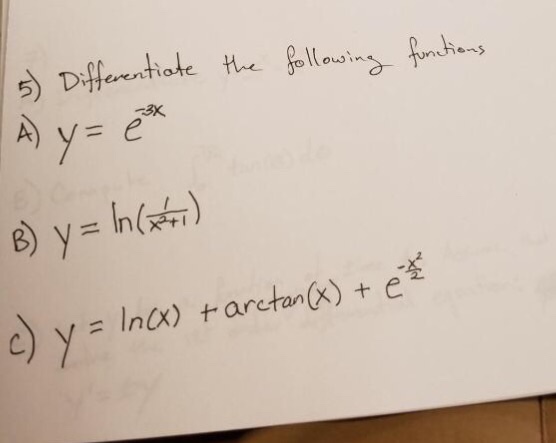 5) Differentiate the following functions
A) y = e^{-3x}
B) y = ln(\frac{1}{x^2+1})
c) y = ln(x) + arctan(x) + e^{-\frac{x^2}{2}}